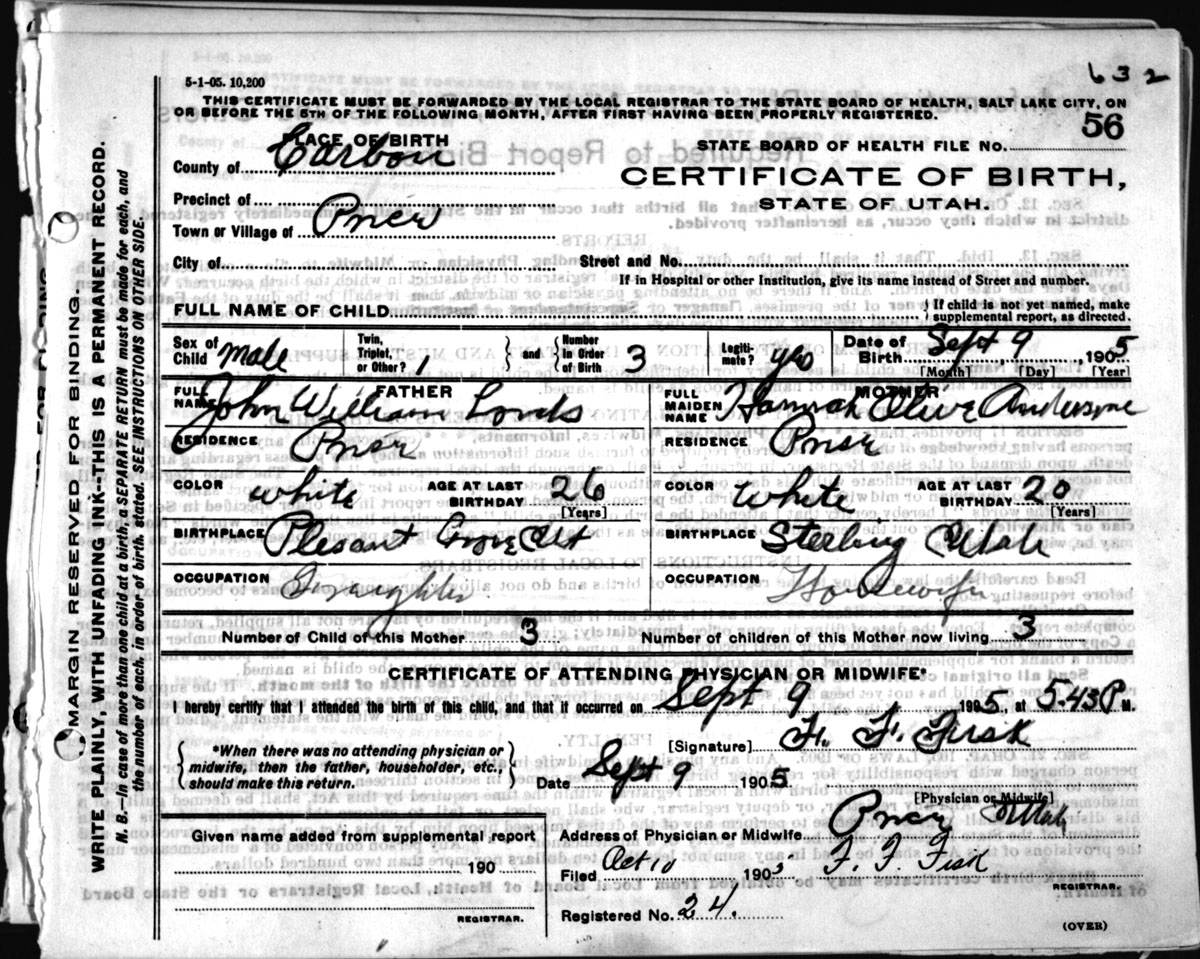 632
5-1-05. 10,200
THIS CERTIFICATE MUST BE FORWARDED BY THE LOCAL REGISTRAR TO THE STATE BOARD OF HEALTH, SALT LAKE CITY, ON
OR BEFORE THE 5TH OF THE FOLLOWING MONTH, AFTER FIRST HAVING BEEN PROPERLY REGISTERED.
56
PLACE OF BIRTH
STATE BOARD OF HEALTH FILE No.
County of Carbon
CERTIFICATE OF BIRTH,
STATE OF UTAH.
Precinct of
Town or Village of Price
City of
Street and No.
If in Hospital or other Institution, give its name instead of Street and number.
FULL NAME OF CHILD
} If child is not yet named, make
supplemental report, as directed.
Sex of Child male
Twin, Triplet, or Other? 1
and
Number in Order of Birth 3
Legitimate? yes
Date of Birth Sept 9, 1905
[Month] [Day] [Year]
FATHER
FULL NAME John William Lords
RESIDENCE Price
COLOR white
AGE AT LAST BIRTHDAY 26
[Years]
BIRTHPLACE Plesant Grove Ut
OCCUPATION
MOTHER
FULL MAIDEN NAME Hannah Olive Anderson
RESIDENCE Price
COLOR White
AGE AT LAST BIRTHDAY 20
[Years]
BIRTHPLACE Sterling Utah
OCCUPATION Housewife
Number of Child of this Mother 3
Number of children of this Mother now living 3
CERTIFICATE OF ATTENDING PHYSICIAN OR MIDWIFE*
I hereby certify that I attended the birth of this child, and that it occurred on Sept 9 1905, at 5.43 P M.
*When there was no attending physician or
midwife, then the father, householder, etc.,
should make this return.
[Signature] F. F. Fisk
Date Sept 9 1905
[Physician or Midwife]
Given name added from supplemental report
190
REGISTRAR.
Address of Physician or Midwife Price Utah
Filed Oct 10 1905 F. F. Fisk
REGISTRAR.
Registered No. 24.
(OVER)
MARGIN RESERVED FOR BINDING.
WRITE PLAINLY, WITH UNFADING INK--THIS IS A PERMANENT RECORD.
N. B.--In case of more than one child at a birth, a SEPARATE RETURN must be made for each, and
the number of each, in order of birth, stated. SEE INSTRUCTIONS ON OTHER SIDE.